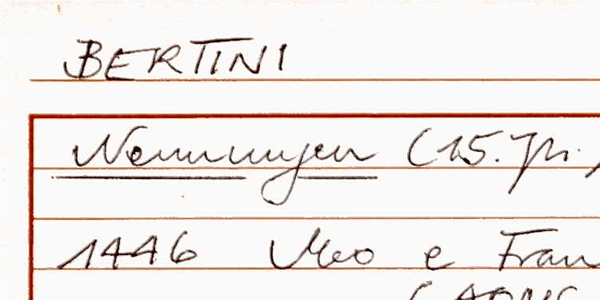 BERTINI
Nennungen (15. Jh.)
1446 Meo e Fran